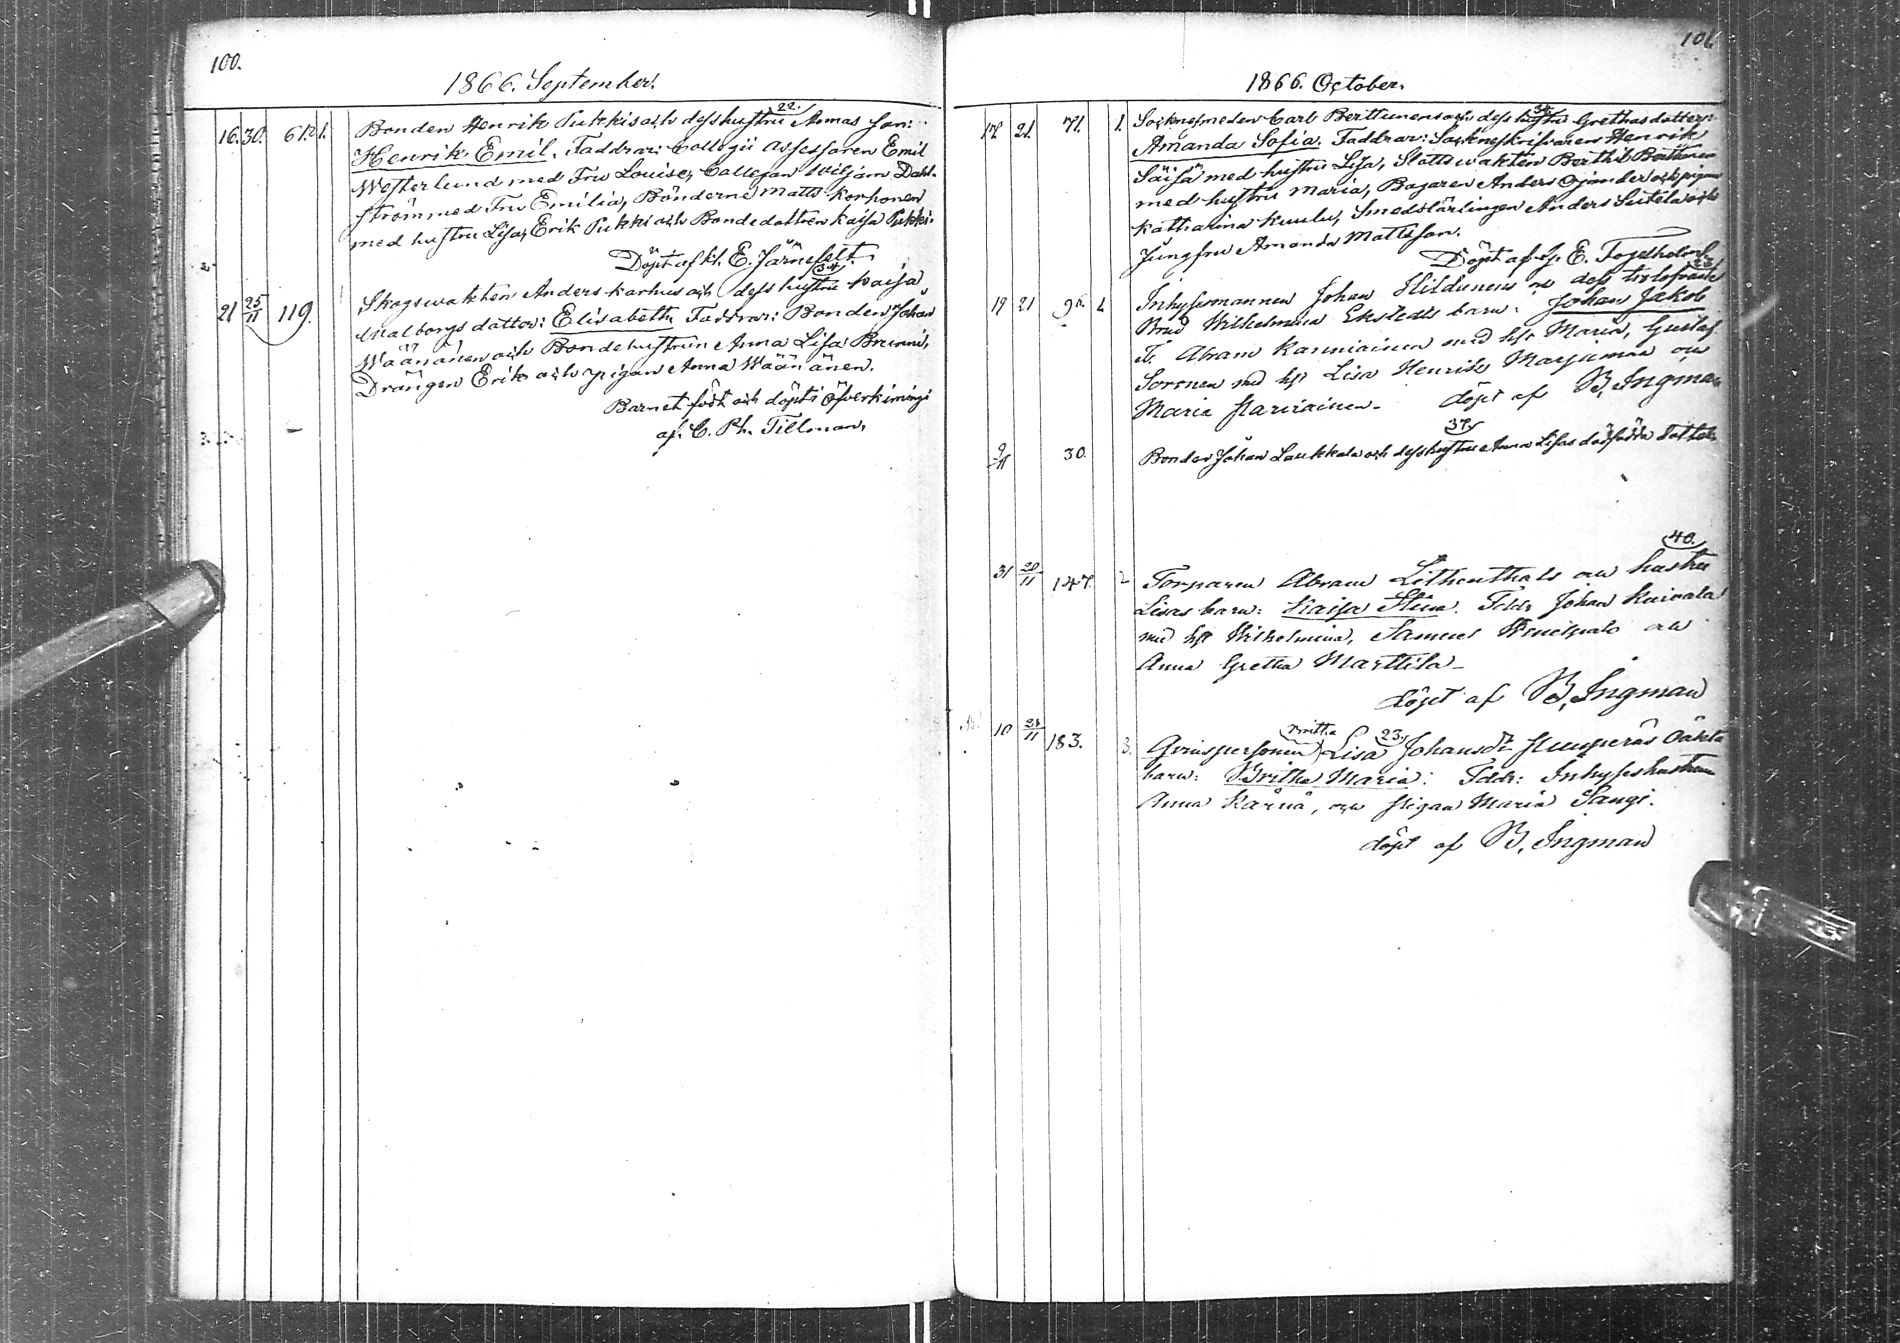 100.
1866. September.
16. 30. 61. 1. Bonden Henrik Pukkis och dess hustru Annas son:
22.
Henrik Emil. Faddrar: Collegii Assessoren Emil
Westerlund med Fru Louise, Collegan Wiljam Dahl-
ström med Fru Emilia, Bönderne Matts Korhonen
med hustru Lisa, Erik Pukki och Bondedottren Kaisa Pukki.
Döpt af kl. E. Järnefelt.
34.
21 25/11 119. Skogswakten Anders Karhus och dess hustru Kaisa
Walborgs dotter: Elisabeth. Faddrar: Bonden Johan
Wäänänen och Bondehustrun Anna Lisa
Drängen Erik och pigan Anna Wäänänen.
Barnet födt och döpt i Öfverkiimingi
af C. Ph. Tillman.
101
1866. October.
17 21. 71. 1. Socknesmeden Carl Berttunens och dess hustru Grethas dotter:
Amanda Sofia. Faddrar: Sockneskrifvaren Henrik
Säisä med hustru Lisa, Stattswakten Berthil
med hustru Maria, Bagaren Anders Ojander och pigan
Katharina Kuulu, Smedslärlingen Anders Sutela och
Jungfru Amanda Mattsson.
Döpt af J. E. Fogelholm.
23.
19 21 96. 1. Inhysesmannen Johan Hildunens o. dess trolofvade
Brud Wilhelmina Ekstedts barn: Johan Jakob
F. Abram Kanniainen med hst Maria, Gustaf
Soronen med hst Lisa Henriks och
Maria
döpt af B. Ingman
37.
9/11 30. Bonden Johan Laukkala och dess hustru Anna Lisas dödfödda dotter
40.
31 20/11 147. 2 Torparen Abram Lithenthals och hustru
Lisas barn: Kaisa Stina. Fddr Johan Kuivala
med hst Wilhelmina, Samuel och
Anna Gretha Marttila
döpt af B. Ingman
Britha 23.
10 24/11 183. 3. Qvinspersonen Lisa Johansdr Oäkta
barn: Britha Maria: Fddr: Inhyseshustrun
Anna Kärnä, och Pigan Maria Sangi.
döpt af B. Ingman